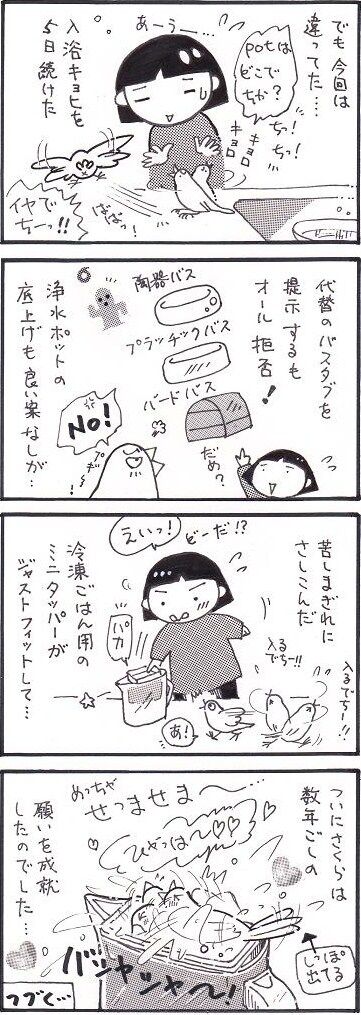 でも今回は
違ってた…
あーうー…
potは
どこで
ちか?
ちっ!
ちっ!
キョロ
キョロ
入浴キョヒを
5日続けた
イヤで
ちーっ!!
ばばっ!
代替のバスタブを
提示するも
オール拒否!
陶器バス
プラッチックバス
バードバス
だめ?
浄水ポットの
底上げも良い案
なしが…
NO!
プギー!
苦しまぎれに
さしこんだ
えいっ!
どーだ!?
入る
でちー!!
入るでちー!!
パカ
あ!
冷凍ごはん用の
ミニタッパーが
ジャストフィットして…
ついにさくらは
数年ごしの
めっちゃ
せつませま〜…
ひゃっはー〜♡♡
しっぽ
出てる
バシャシャシャ〜!
願いを成就
したのでした…
つづく…